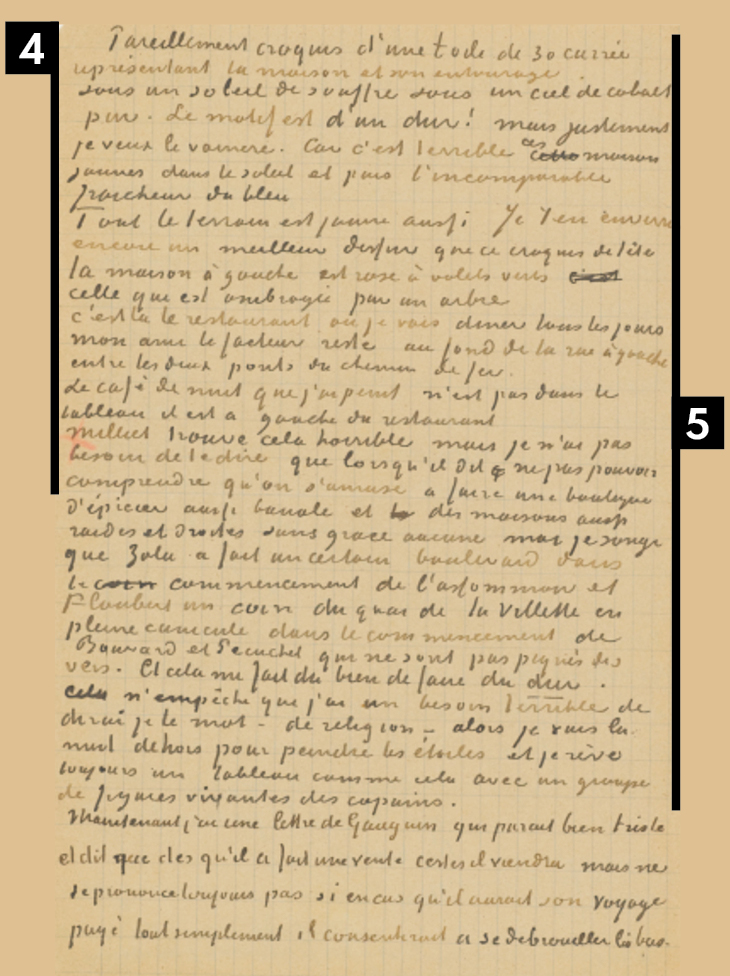 4
Pareillement croquis d'une toile de 30 carrée
représentant la maison et son entourage
sous un soleil de souffre sous un ciel de cobalt
pur. Le motif est d'un dur! mais justement
je veux le vaincre. Car c'est terrible ces maisons
jaunes dans le soleil et puis l'incomparable
fraicheur du bleu
Tout le terrain est jaune aussi Je t'en enverrai
encore un meilleur dessin que ce croquis de tête
la maison à gauche est rose à volets verts
celle qui est ombragée par un arbre
c'est là le restaurant où je vais diner tous les jours
mon ami le facteur reste au fond de la rue à gauche
entre les deux ponts du chemin de fer.
Le café de nuit que j'ai peint n'est pas dans le
tableau il est a gauche du restaurant
5
Milliet trouve cela horrible mais je n'ai pas
besoin de te dire que lorsqu'il dit ne pas pouvoir
comprendre qu'on s'amuse a faire une boutique
d'épicier aussi banale et des maisons aussi
raides et droites sans grace aucune moi je songe
que Zola a fait un certain boulevard dans
le commencement de l'assommoir et
Flaubert un coin du quai de la Villette en
pleine canicule dans le commencement de
Bouvard et Pecuchet qui ne sont pas piqués des
vers. Et cela me fait du bien de faire du dur.
cela n'empêche que j'ai un besoin terrible de
dirai je le mot - de religion - alors je vais la
nuit dehors pour peindre les étoiles et je rêve
toujours un tableau comme cela avec un groupe
de figures vivantes des copains.
Maintenant j'ai une lettre de Gauguin qui parait bien triste
et dit que dès qu'il a fait une vente certes il viendra mais ne
se prononce toujours pas si en cas qu'il aurait son voyage
payé tout simplement il consentirait a se debrouiller là bas.